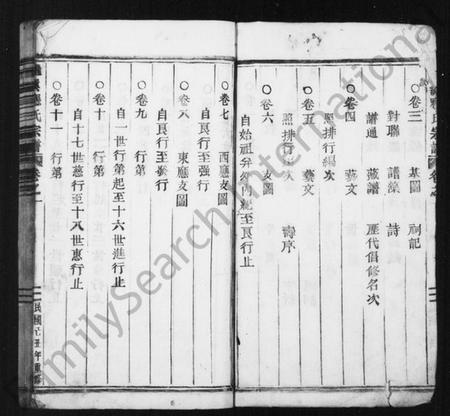 ○卷三 基圖 祠記
對聯 譜論 詩
譜通 藏譜 歷代倡修名次
○卷四 藝文
照排行編次
○卷五 藝文
照排行編次 壽序
○卷六 支圖
自始祖弁分內紀至良行止
○卷七 西廳支圖
自良行至強行
○卷八 東廳支圖
自良行至發行
○卷九 行第
自一世行第起至十六世進行止
○卷十 行第
自十七世慈行至十八世惠行止
○卷十一 行第
氏宗譜
民國己丑年重修
FamilySearch International